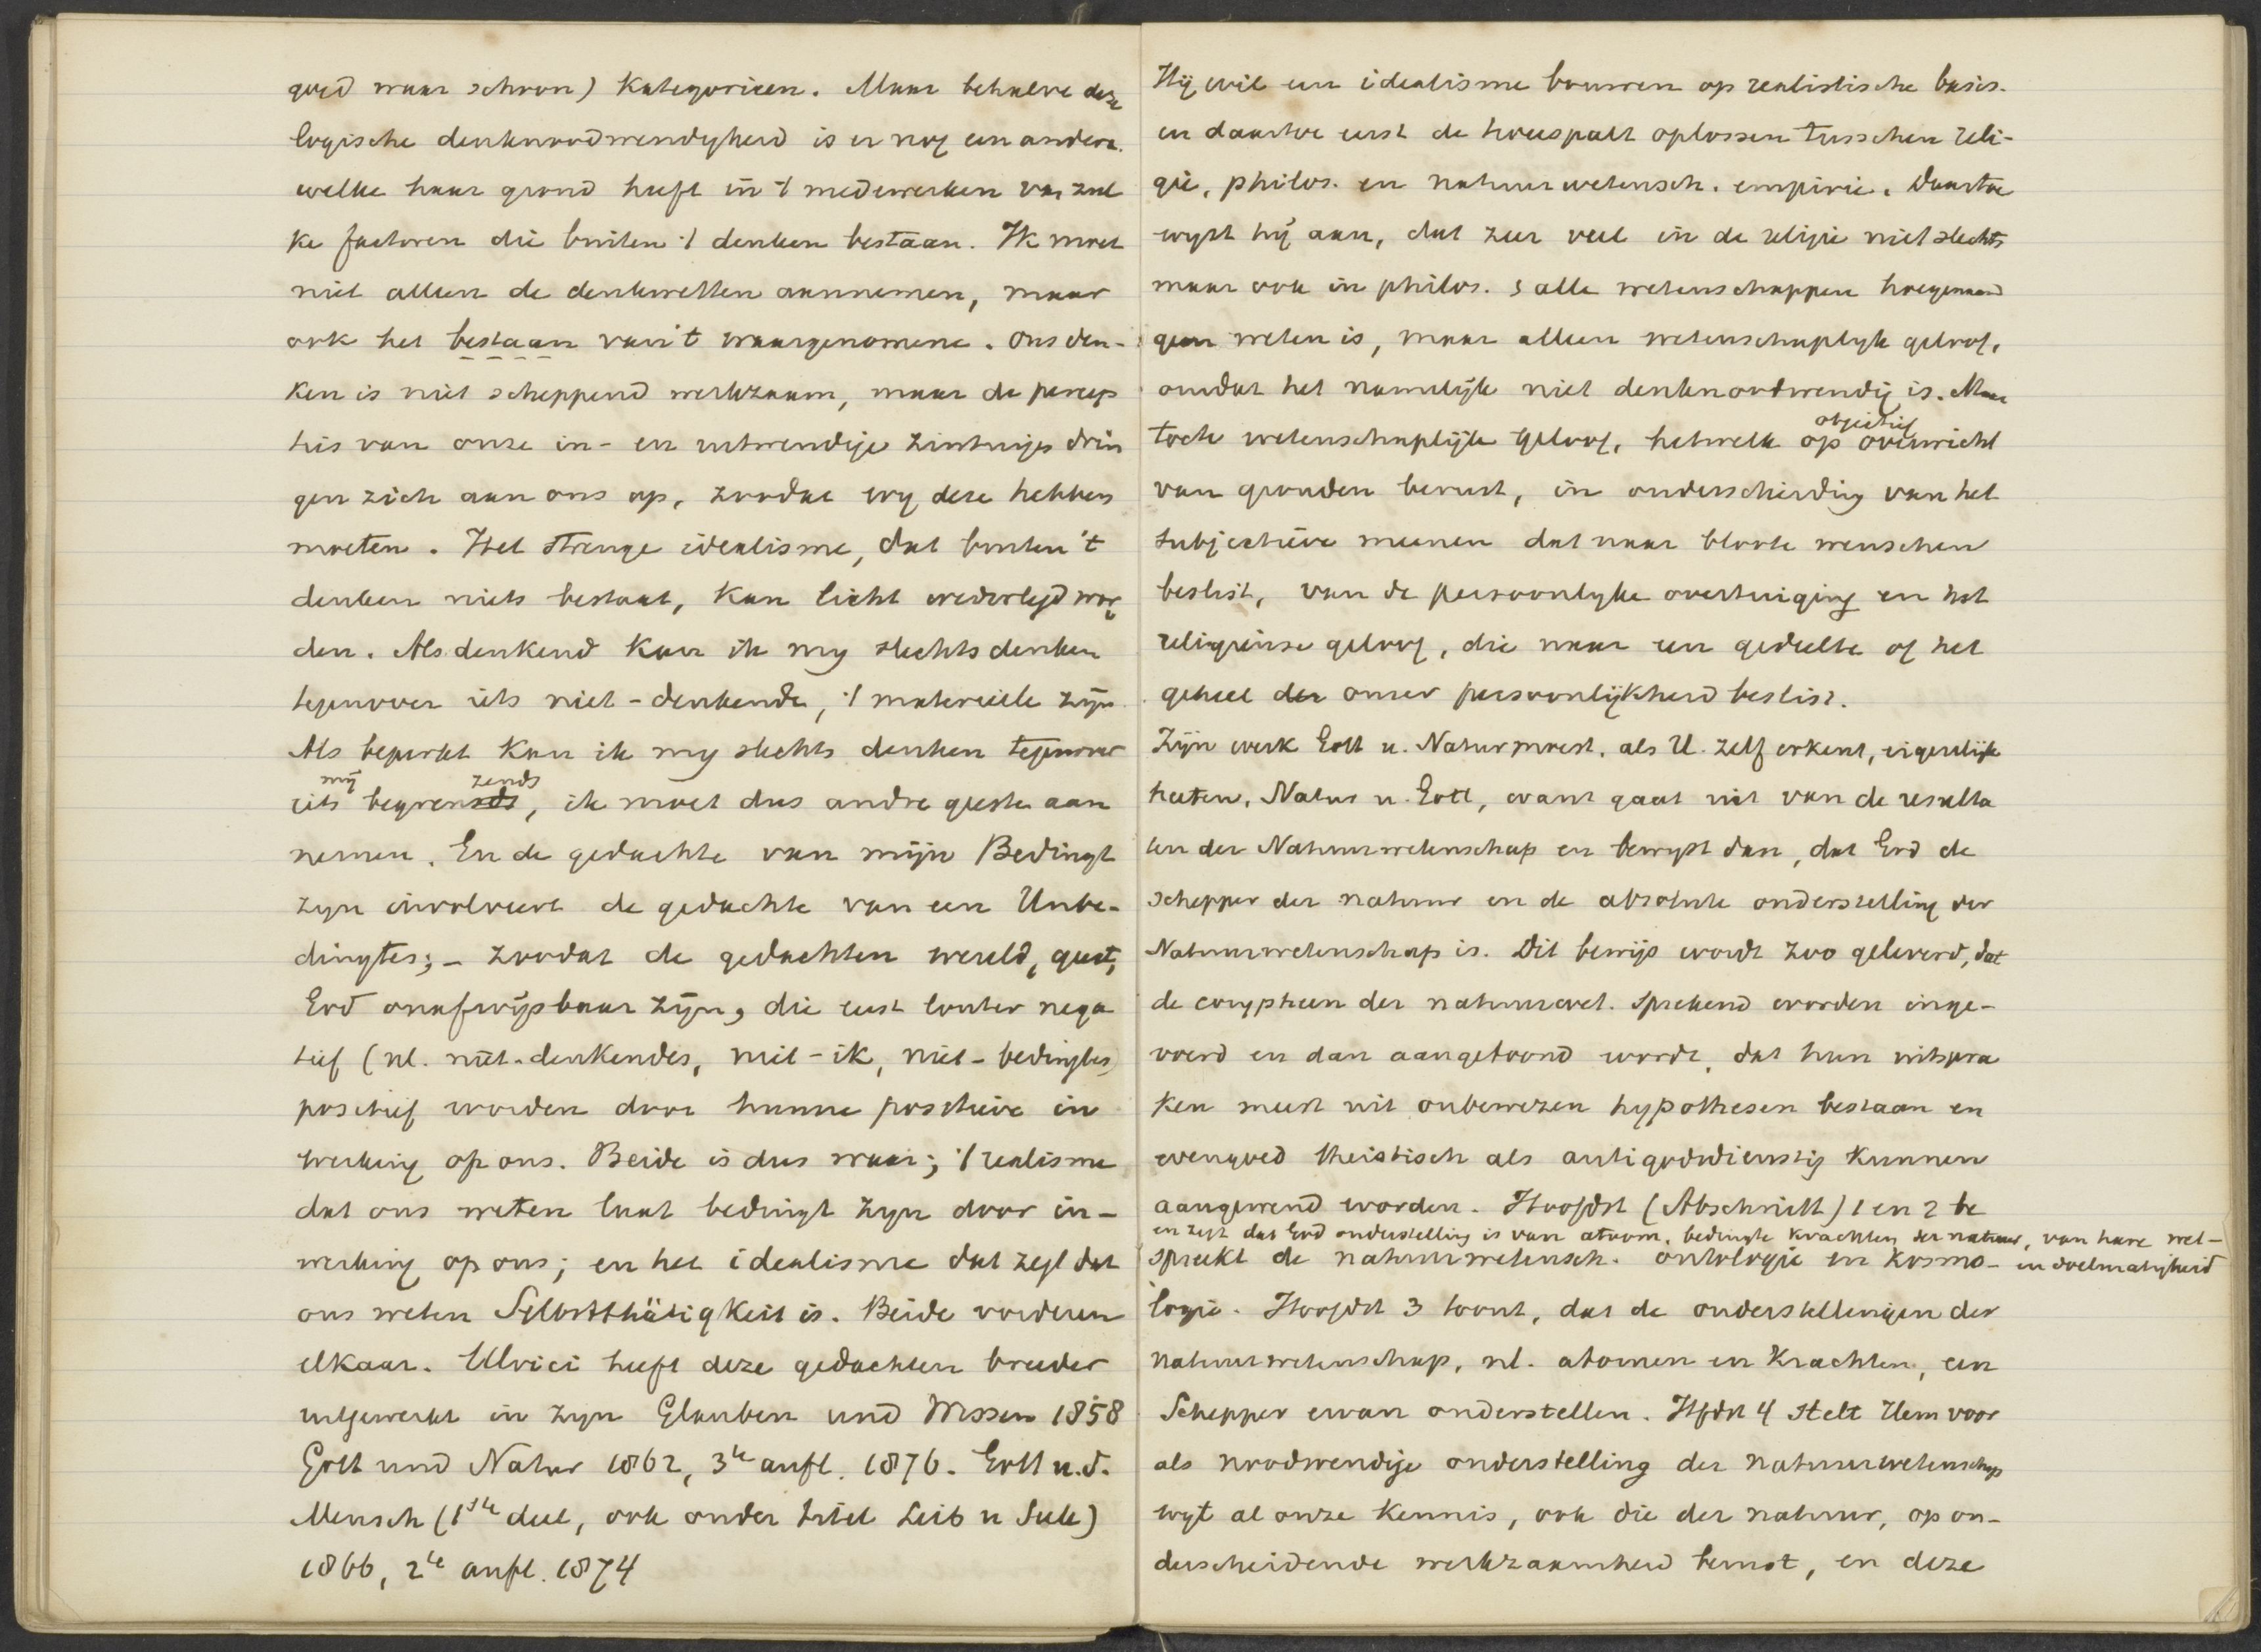 goed waar schoon) Kategorieen. Maar behalve deze
logische denknoodwendigheid is er nog een andere.
welke haar grond heeft in 't medewerken van zul
ke factoren die buiten 't denken bestaan. Ik moet
niet alleen de denkwetten aannemen, maar
ook het bestaan van 't waargenomene. Ons den-
ken is niet scheppend werkzaam, maar de percep
ties van onze in- en uitwendige zintuigen drin
gen zich aan ons op, zoodat wy deze hebben
moeten. Het strenge idealisme, dat buiten 't
denken niets bestaat, kan licht wederlegd wor
den. Als denkend kan ik my slechts denken
tegenover iets niet-denkends, 't materieele zijn.
Als beperkt kan ik my slechts denken tegenover
iets mij begrenzends, ik moet dus andre geesten aan
nemen. En de gedachte van mijn Bedingt
zyn involveert de gedachte van een Unbe-
dingtes; – zoodat de gedachten wereld, geest,
God onafwijsbaar zijn, die eerst louter nega
tief (nl. niet-denkendes, niet-ik, niet-bedingtes)
positief worden door hunne positieve in
werking op ons. Beide is dus waar; 't realisme
dat ons weten laat bedingt zyn door in-
werking op ons; en het idealisme dat zegt dat
ons weten Selbstthätigkeit is. Beide vorderen
elkaar. Ulrici heeft deze gedachten breeder
uitgewerkt in zyn Glauben und Wissen 1858
Gott und Natur 1862, 3te aufl. 1876. Gott u.d.
Mensch (1ste deel, ook onder titel Leib u Seele)
1866, 2te aufl. 1874
Hij wil een idealisme bouwen op realistische basis.
en daartoe eerst de tweespalt oplossen tusschen reli-
gie, philos. en natuurwetensch. empirie. Daartoe
wyst hij aan, dat zeer veel in de religie niet slechts
maar ook in philos. & alle wetenschappen hoegenaamd
geen weten is, maar alleen wetenschaplyk geloof,
omdat het namelijk niet denknoodwendig is. Maar
toch wetenschaplijk geloof, hetwelk op objectief overwicht
van gronden berust, in onderscheiding van het
subjectieve meenen dat naar bloote wenschen
beslist, van de persoonlyke overtuiging en het
religieuse geloof, die naar een gedeelte of het
geheel der onzer persoonlijkheid beslist.
Zijn werk Gott u. Natur moest, als U. zelf erkent, eigenlijk
heeten, Natur u. Gott, want gaat uit van de resulta
ten der Natuurwetenschap en bewyst dan, dat God de
schepper der natuur en de absolute onderstelling der
Natuurwetenschap is. Dit bewijs wordt zoo geleverd, dat
de corypheen der natuurwet. sprekend worden inge-
voerd en dan aangetoond wordt, dat hun uitspra
ken meest uit onbewezen hypothesen bestaan en
evengoed theistisch als antigodsdienstig kunnen
aangewend worden. Hoofdst (Abschnitt) 1 en 2 be
spreekt de natuurwetensch. ontologie en kosmo-
en zegt dat God onderstelling is van atoom, bedingte krachten der natuur, van hare wet-
en doelmatigheid
logie. Hoofdst 3 toont, dat de onderstellingen der
natuurwetenschap, nl. atomen en krachten, een
Schepper ervan onderstellen. Hfdst 4 stelt Hem voor
als noodwendige onderstelling der natuurwetenschap
wyl al onze kennis, ook die der natuur, op on-
derscheidende werkzaamheid berust, en deze